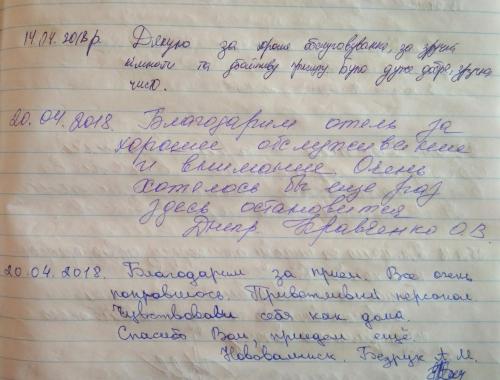 14.04.2018 р. Дякую за хороше обслуговування, за зручні
кімнати та увагу. Було дуже добре, зручно
чисто.
20.04.2018. Благодарим отель за
хорошее обслуживание
и внимание Очень
хотелось бы еще раз
здесь остановится
Днепр Кравченко О.В.
20.04.2018. Благодарим за прием. Все очень
понравилось. Приветливый персонал
Чувствовали себя как дома.
Спасибо Вам, приедем ещё.
Безрук А. М.